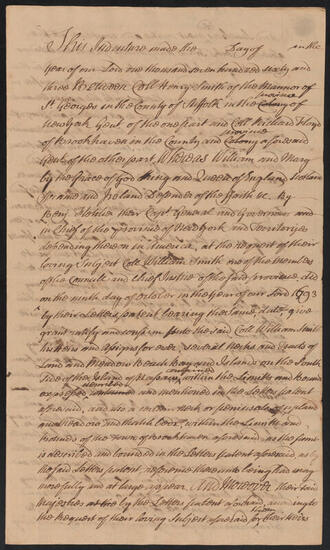 This Indenture made the Day of in the
year of our Lord one thousand seven hundred sixty and
three Between Coll Henry Smith of the Mannor of
St Georges in the County of Suffolk in the Colony of
province
New York Gent of the one Part and Coll Richard Floyd
of Brookhaven in the County and Colony aforesaid
province
Gent of the other part Whereas William and Mary
by the Grace of God King and Queen of England Scotland
France and Ireland Defender of the faith &c By
Benj Fletcher their Capt General and Governour and
in Chief of the province of New York and Territories
depending thereon in America, at the request of their
loving Subject Coll William Smith one of the members
of the Councill and Chief Justice of the said province did
on the ninth day of October in the year of our Lord 1693
by their Letters patent bearing the same date give
grant ratify and confirm unto the said Coll William Smith
his heirs and assigns for ever several Necks and Tracts of
Land and Meadow Beach Bay and Islands on the South
side of the Island of Nassau within the Limits and Bounds
expressed and mentioned in the Letters patent
aforesaid, and also a certain Neck or peninsula of upland
and Meadow and thatch bed within the Limits and
bounds of the Town of Brookhaven aforesaid as the same
is described and bounded in the Letters patent aforesaid as by
the said Letters patent reference thereunto being had may
more fully and at large appear And Whereas their said
Majesties by the Letters patent aforesaid according to
the Request of their loving Subject aforesaid for their heirs